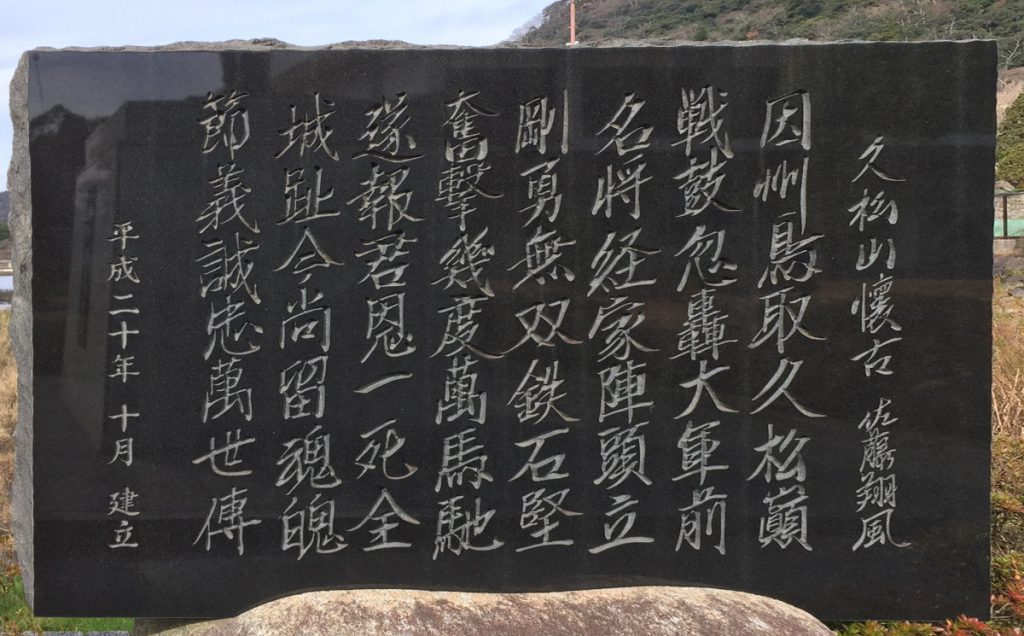 久松山懐古 佐藤翔風
因州鳥取久松巓
戦鼓忽轟大軍前
名将経家陣頭立
剛勇無双鉄石堅
奮撃幾度萬馬馳
遂報君恩一死全
城趾今尚留魂魄
節義誠忠萬世傳
平成二十年 十月 建立